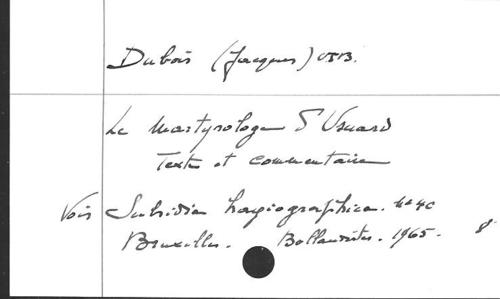 Dubois (Jacques) OSB.
Le Martyrologe d'Usuard
Texte et commentaire
Voir Subsidia hagiographica. n° 40
Bruxelles. Bollandistes. 1965. 8°